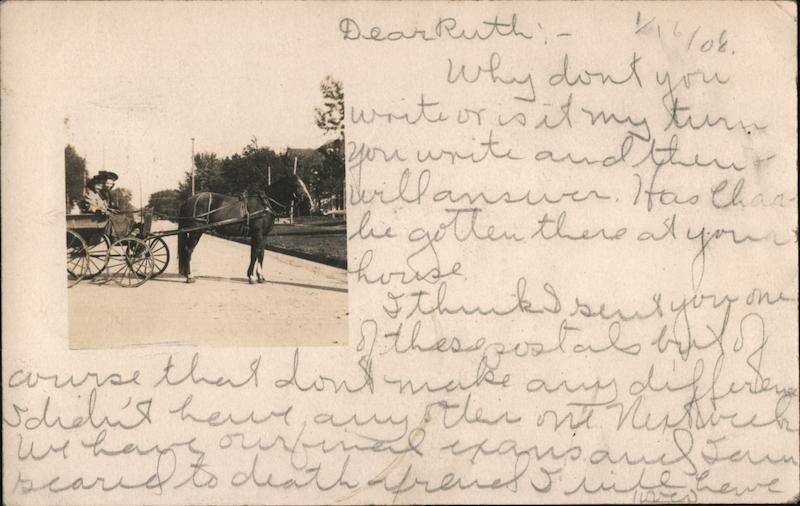 1/16/08.
Dear Ruth:-
Why dont you
write or is it my turn
you write and then I
will answer. Has Char
he gotten there at your
house
I think I sent you one
of these postals but of
course that dont make any difference
I didn't have any other one. Next week
We have our final exams and I am
scared to death afraid I will have
(over)